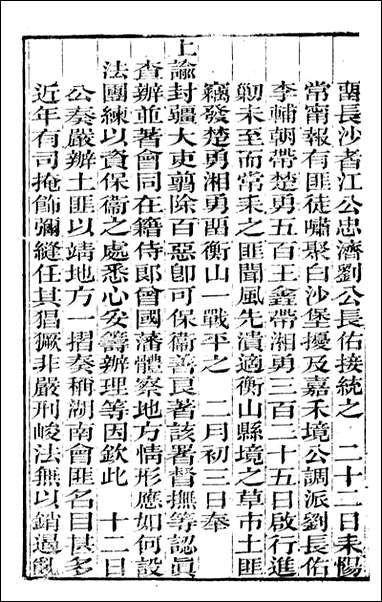 留長沙者江公忠濟劉公長佑接統之 二十二日耒陽
常甯報有匪徒嘯聚白沙堡擾及嘉禾境公調派劉長佑
李輔朝帶楚勇五百王鑫帶湘勇三百二十五日啟行進
剿未至而常耒之匪聞風先潰適衡山縣境之草市土匪
竊發楚勇湘勇留衡山一戰平之 二月初三日奉
上諭封疆大吏翦除百惡卽可保衞善良著該署督撫等認眞
查辦並著會同在籍侍郞曾國藩體察地方情形應如何設
法團練以資保衞之處悉心妥籌辦理等因欽此 十二日
公奏嚴辦土匪以靖地方一摺奏稱湖南會匪名目甚多
近年有司掩飾彌縫任其猖獗非嚴刑峻法無以銷遏亂